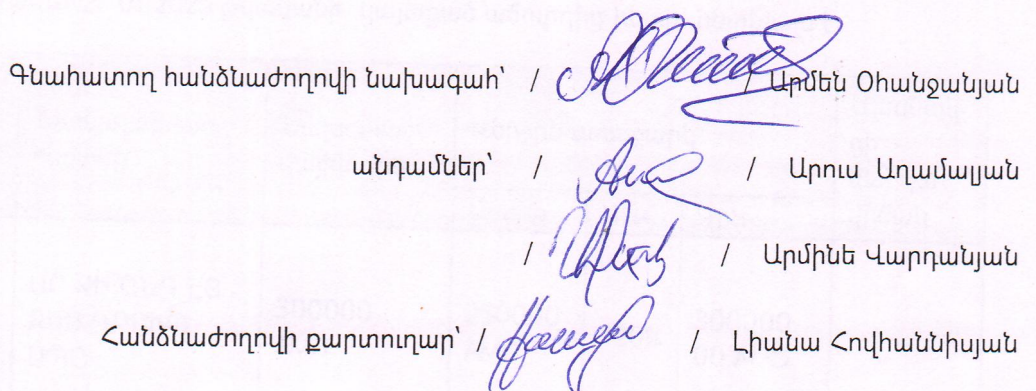 Գնահատող հանձնաժողովի նախագահ՝ / / Արմեն Օհանջանյան
անդամներ՝ / / Արուս Աղամալյան
/ / Արմինե Վարդանյան
Հանձնաժողովի քարտուղար՝ / / Լիանա Հովհաննիսյան